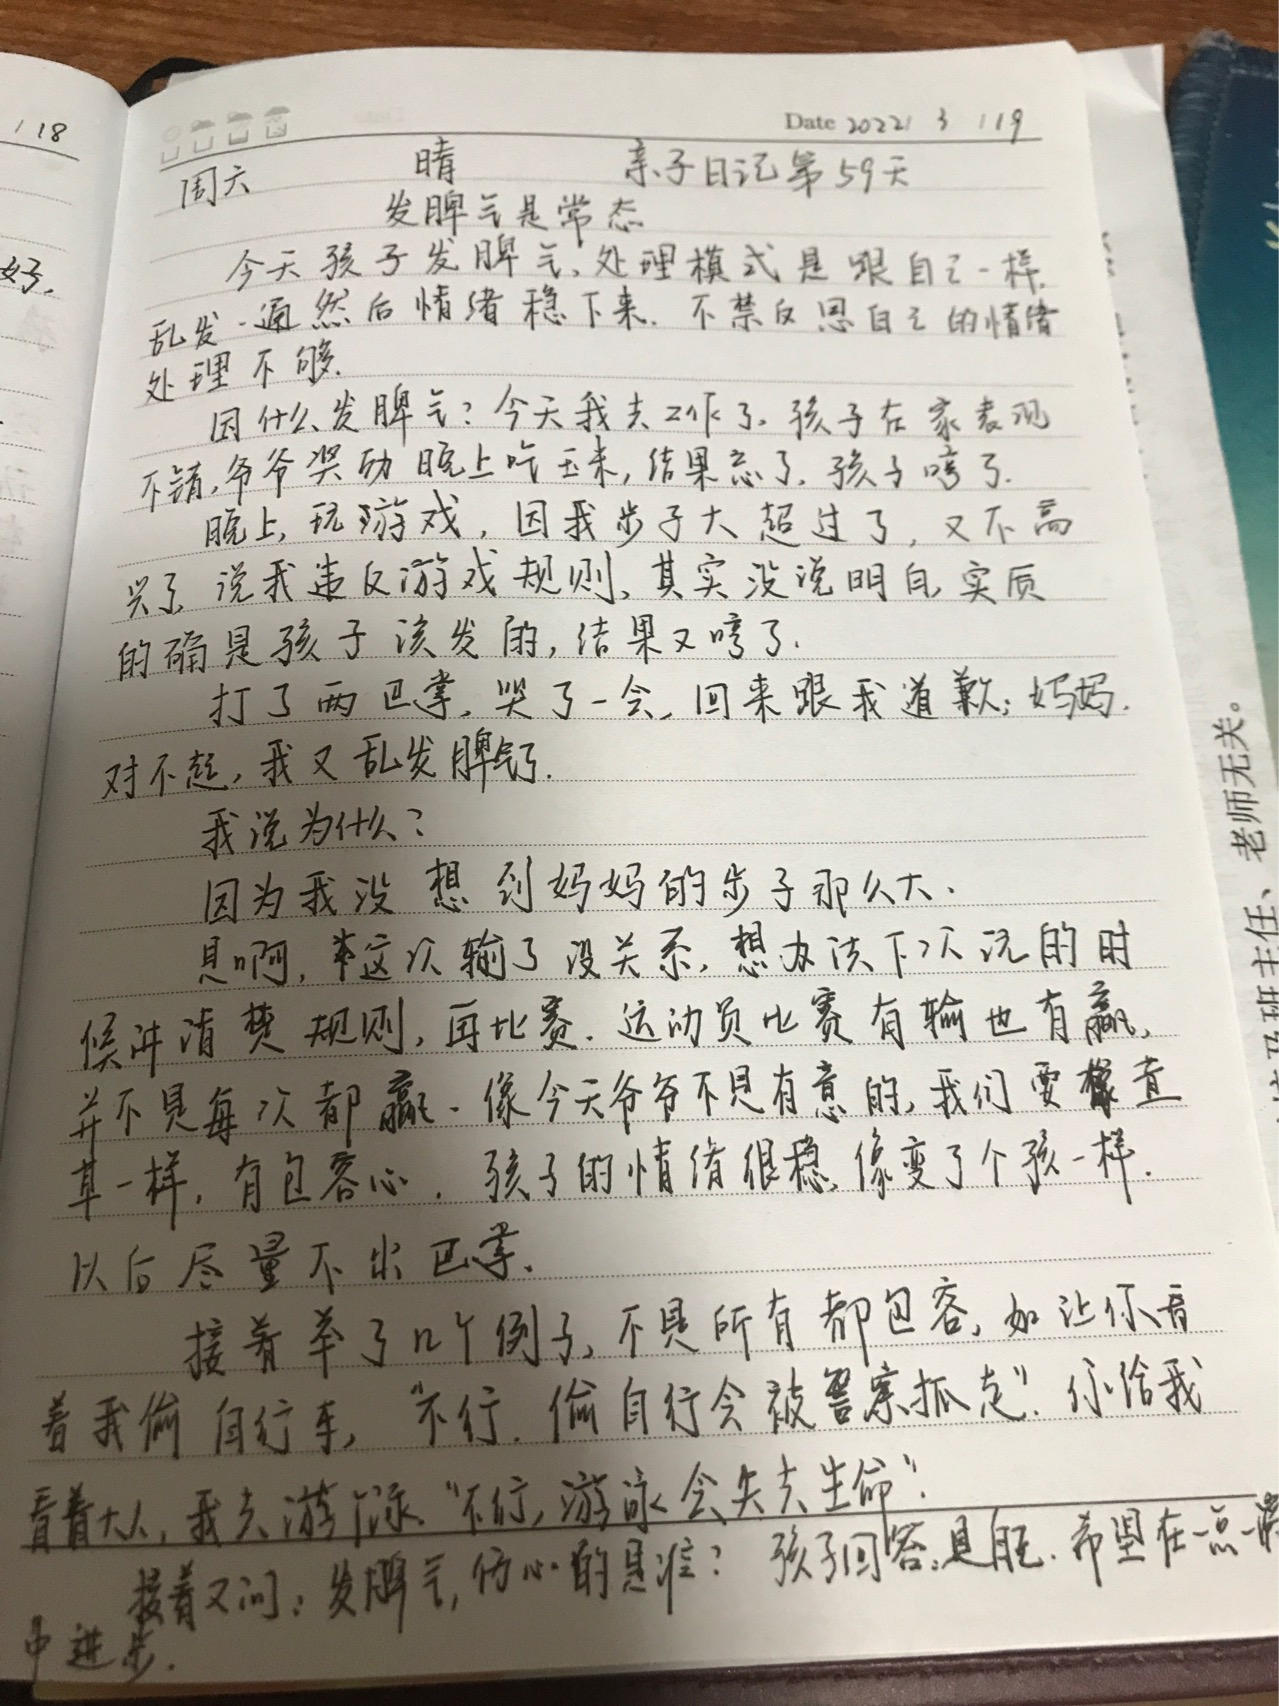 118
好,
Date 2022 / 3 / 19
周六 晴 亲子日记第59天
发脾气是常态
今天孩子发脾气,处理模式是跟自己一样,
乱发一通然后情绪稳下来.不禁反思自己的情绪
处理不够.
因什么发脾气?今天我去工作了,孩子在家表现
不错,爷爷奖励晚上吃玉米,结果忘了,孩子哼了.
晚上,玩游戏,因我步子大超过了,又不高
兴了,说我违反游戏规则,其实没说明白,实质
的确是孩子该发的,结果又哼了.
打了两巴掌,哭了一会,回来跟我道歉:妈妈,
对不起,我又乱发脾气了.
我说为什么?
因为我没想到妈妈的步子那么大.
是啊,这次输了没关系,想办法下次玩的时
候讲清楚规则,再比赛.运动员比赛有输也有赢,
并不是每次都赢.像今天爷爷不是有意的,我们要像
草一样,有包容心.孩子的情绪很稳,像变了个孩一样.
以后尽量不出巴掌.
接着举了几个例子,不是所有都包容,如让你看
着我偷自行车,"不行.偷自行会被警察抓走".你给我
看着大人,我去游泳."不行,游泳会失去生命".
接着又问:发脾气,伤心的是谁?孩子回答:是自己.希望在一点一滴
中进步.
老师无关。
班主任、